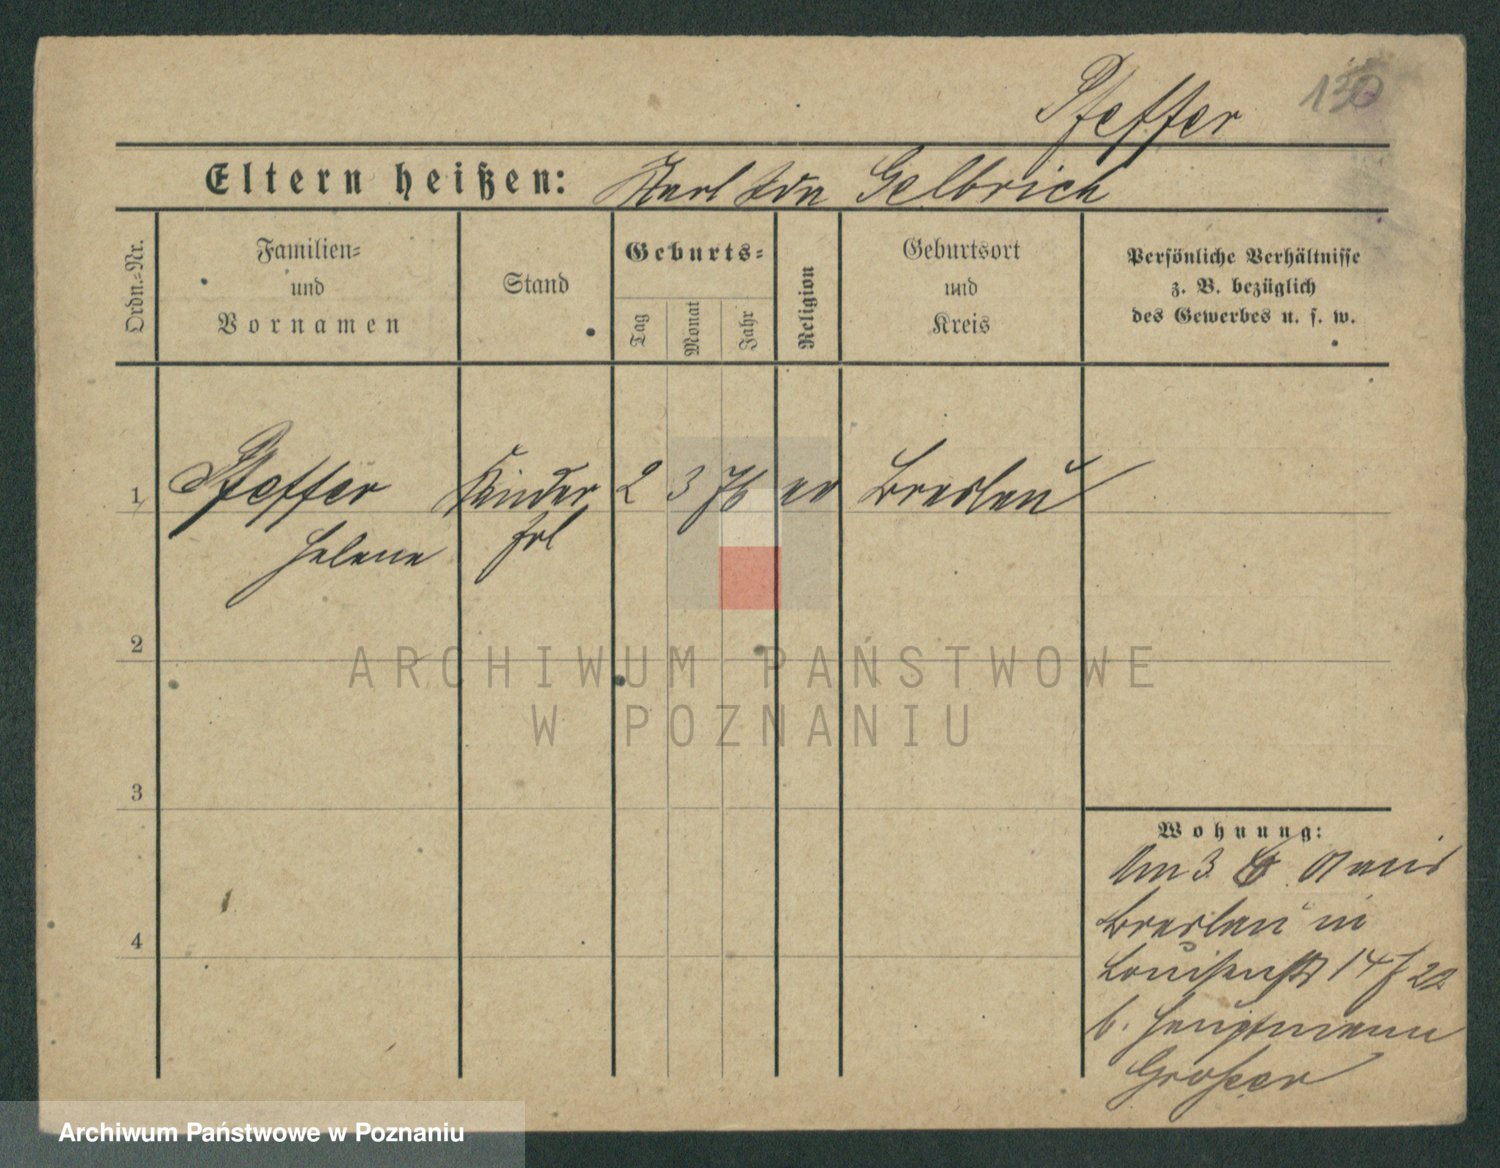 130
Pfeffer
Eltern heißen: Karl Ida Gelbrich
Ordn.-Nr.
Familien- und Vornamen
Stand
Geburts-
Tag
Monat
Jahr
Religion
Geburtsort und Kreis
Persönliche Verhältnisse z. B. bezüglich des Gewerbes u. s. w.
1 Pfeffer Kinder 2 3 76 ev Breslau
Helene frl
2
ARCHIWUM PAŃSTWOWE
W POZNANIU
3
Wohnung:
Am 3. 6.
Breslau in
Louisenstr 14
4
b. Hauptmann
Großer
Archiwum Państwowe w Poznaniu